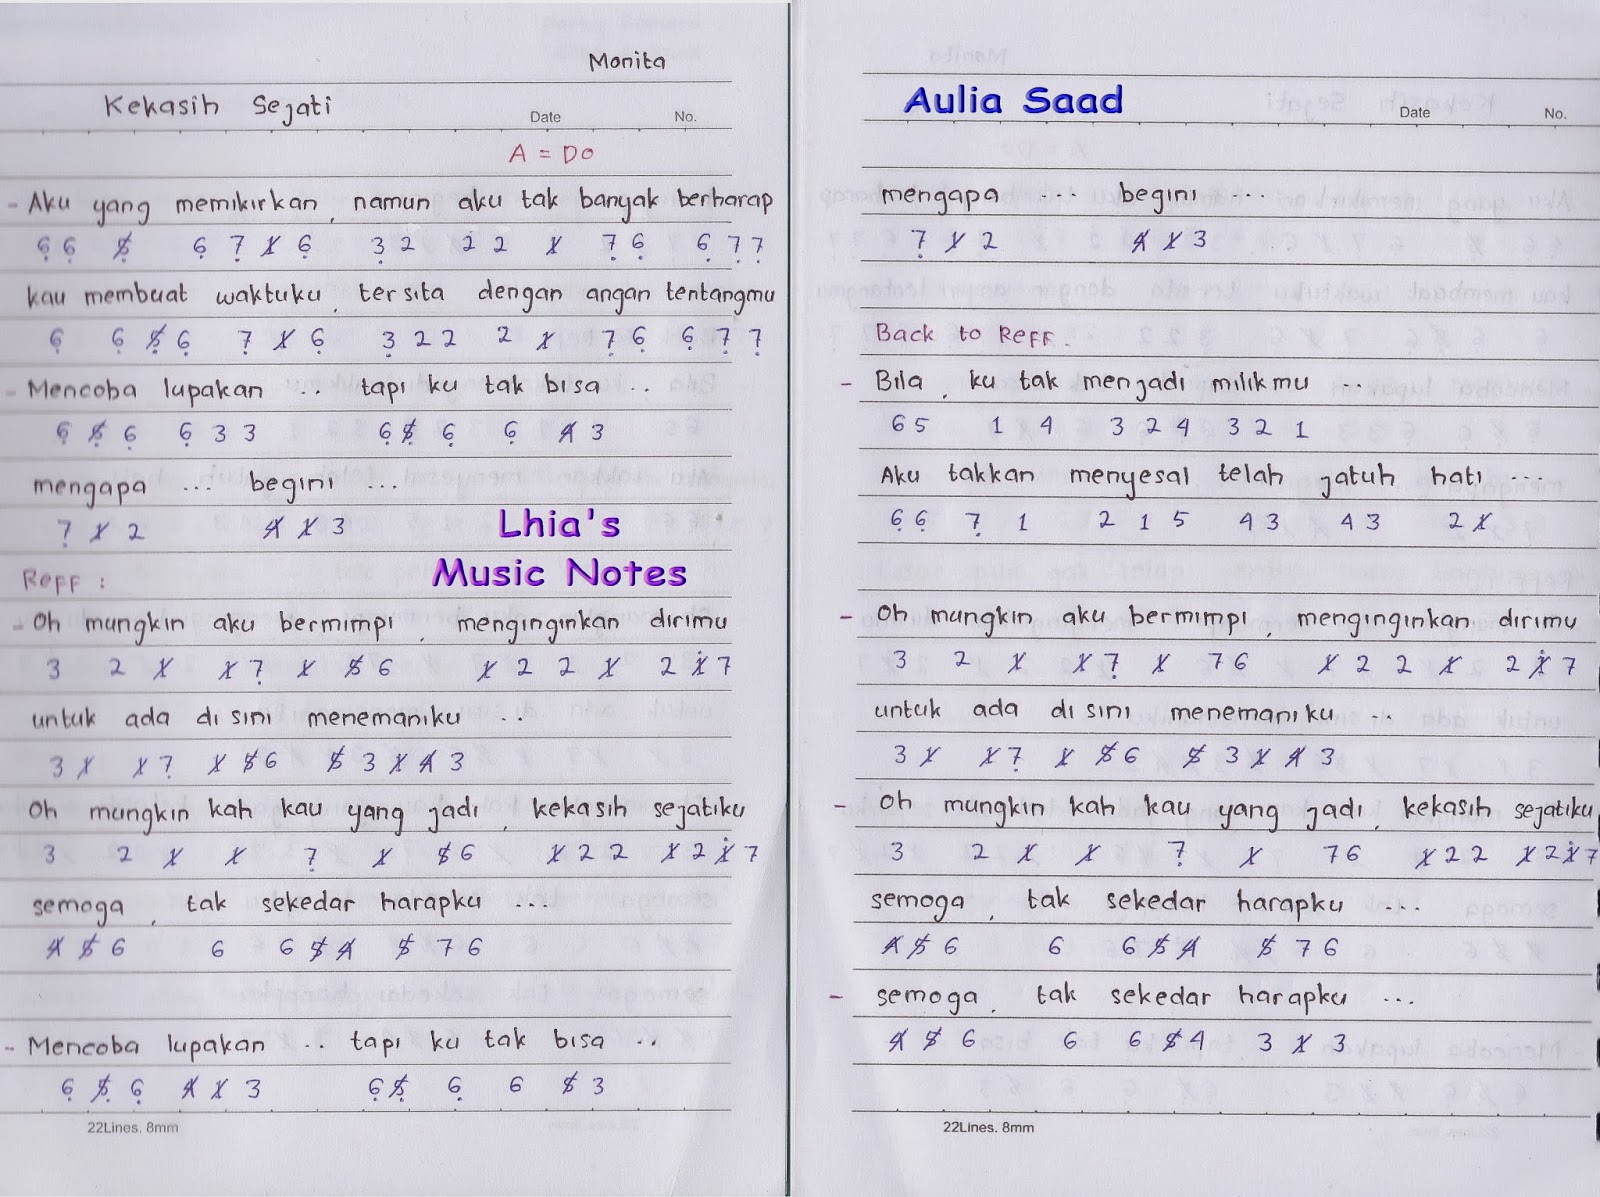 Monita
Kekasih Sejati
Date No.
A = Do
- Aku yang memikirkan, namun aku tak banyak berharap
6̣ 6̣ 5̸̣ 6̣ 7̣ 1̸ 6̣ 3̣ 2 2 2 1̸ 7̣ 6̣ 6̣ 7̣ 7̣
kau membuat waktuku, tersita dengan angan tentangmu
6̣ 6̣ 5̸̣ 6̣ 7̣ 1̸ 6̣ 3̣ 2 2 2 1̸ 7̣ 6̣ 6̣ 7̣ 7̣
- Mencoba lupakan .. tapi ku tak bisa ..
6̣ 5̸̣ 6̣ 6̣ 3 3 6̣ 5̸̣ 6̣ 6̣ 4̸ 3
mengapa ... begini ...
7̣ 1̸ 2 4̸ 1̸ 3
Lhia's
Music Notes
Reff :
- Oh mungkin aku bermimpi, menginginkan dirimu
3 2 1̸ 1̸ 7̣ 1̸ 5̸ 6 1̸ 2 2 1̸ 2 1̸̇ 7
untuk ada di sini menemaniku ..
3 1̸ 1̸ 7̣ 1̸ 5̸ 6 5̸ 3 1̸ 4̸ 3
Oh mungkin kah kau yang jadi, kekasih sejatiku
3 2 1̸ 1̸ 7̣ 1̸ 5̸ 6 1̸ 2 2 1̸ 2 1̸̇ 7
semoga, tak sekedar harapku ...
4̸ 5̸ 6 6 6 5̸ 4̸ 5̸ 7 6
- Mencoba lupakan .. tapi ku tak bisa ..
6̣ 5̸̣ 6̣ 4̸ 1̸ 3 6̣ 5̸̣ 6̣ 6 5̸ 3
22Lines. 8mm
Aulia Saad
Date No.
mengapa ... begini ...
7̣ 1̸ 2 4̸ 1̸ 3
Back to Reff.
- Bila, ku tak menjadi milikmu ..
6 5 1 4 3 2 4 3 2 1
Aku takkan menyesal telah jatuh hati ...
6̣ 6̣ 7̣ 1 2 1 5 4 3 4 3 2 1̸
- Oh mungkin aku bermimpi, menginginkan dirimu
3 2 1̸ 1̸ 7̣ 1̸ 7 6 1̸ 2 2 1̸ 2 1̸̇ 7
untuk ada di sini menemaniku ..
3 1̸ 1̸ 7̣ 1̸ 5̸ 6 5̸ 3 1̸ 4̸ 3
- Oh mungkin kah kau yang jadi, kekasih sejatiku
3 2 1̸ 1̸ 7̣ 1̸ 7 6 1̸ 2 2 1̸ 2 1̸̇ 7
semoga, tak sekedar harapku ...
4̸ 5̸ 6 6 6 5̸ 4̸ 5̸ 7 6
- semoga, tak sekedar harapku ...
4̸ 5̸ 6 6 6 5̸ 4 3 1̸ 3
22Lines. 8mm